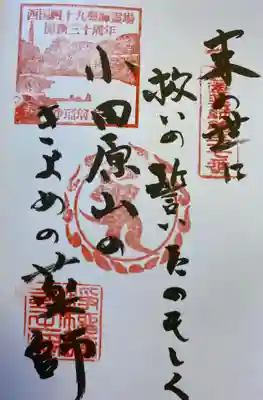 末の世に
救いの誓いたのもしく
小田原山の
きよめの薬師
西国四十九薬師霊場
開創三十周年